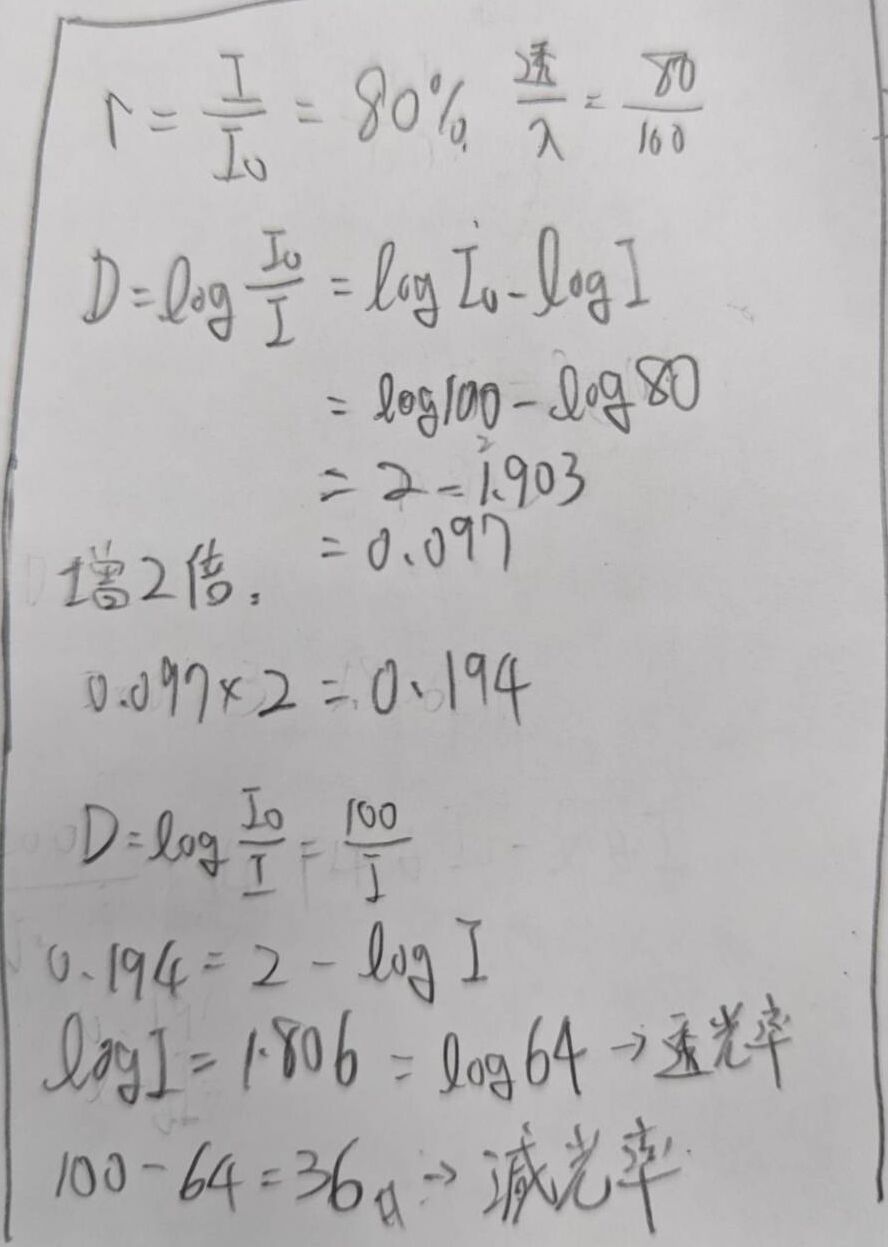 r = I/I₀ = 80% 透/入 = 80/100
D = log I₀/I = log I₀ - log I
= log100 - log80
= 2 - 1.903
= 0.097
增2倍:
0.097 × 2 = 0.194
D = log I₀/I = 100/I
0.194 = 2 - log I
log I = 1.806 = log64 → 透光率
100 - 64 = 36 → 減光率